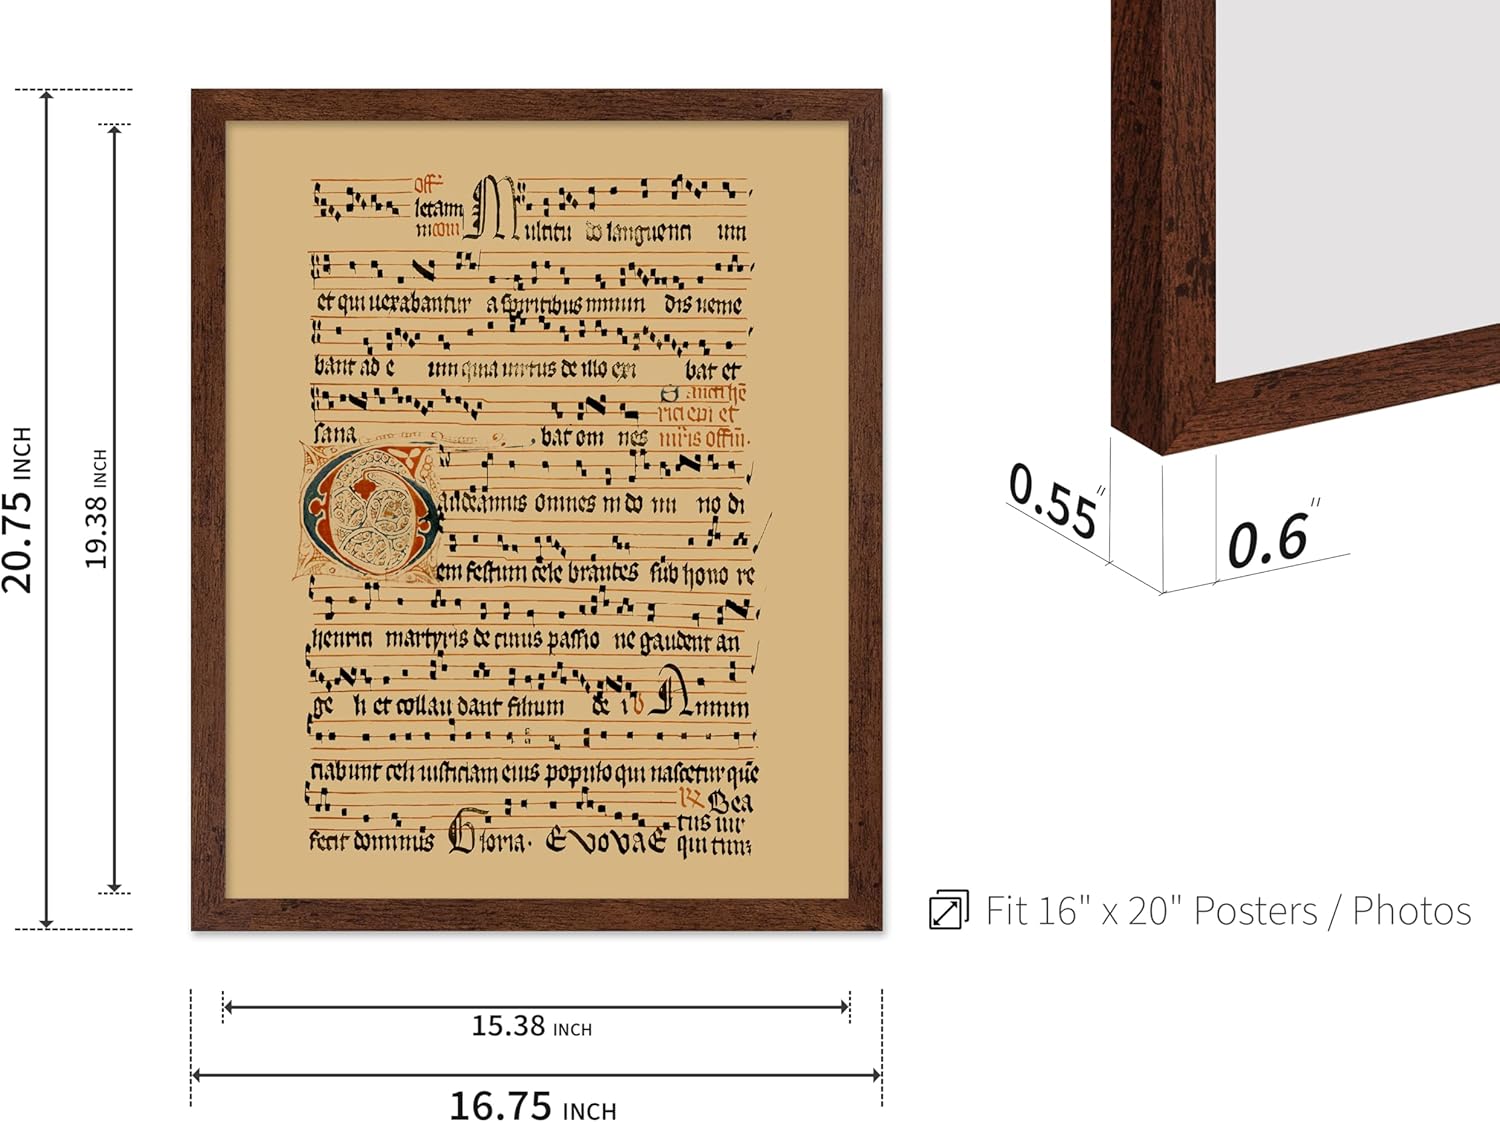 20.75 INCH
19.38 INCH
off
letann
m com
Multitu do languenti um
et qui uexabantur a spiritibus inmun dis ueme
bant ad e um quia uirtus de illo exi bat et
Sancti hē
rici epi et
sana bat om nes mr̄is offm̄.
Gaudeamus omnes in do mi no di
em festum cele brantes sub hono re
henrici martyris de cuius passio ne gaudent an
ge li et collau dant filium de i V Annun
ciabunt celi iusticiam eius populo qui nascetur quē
R Bea
tus uir
fecit dominus Gloria. EVOVAE qui tim
15.38 INCH
16.75 INCH
0.55"
0.6"
Fit 16" x 20" Posters / Photos